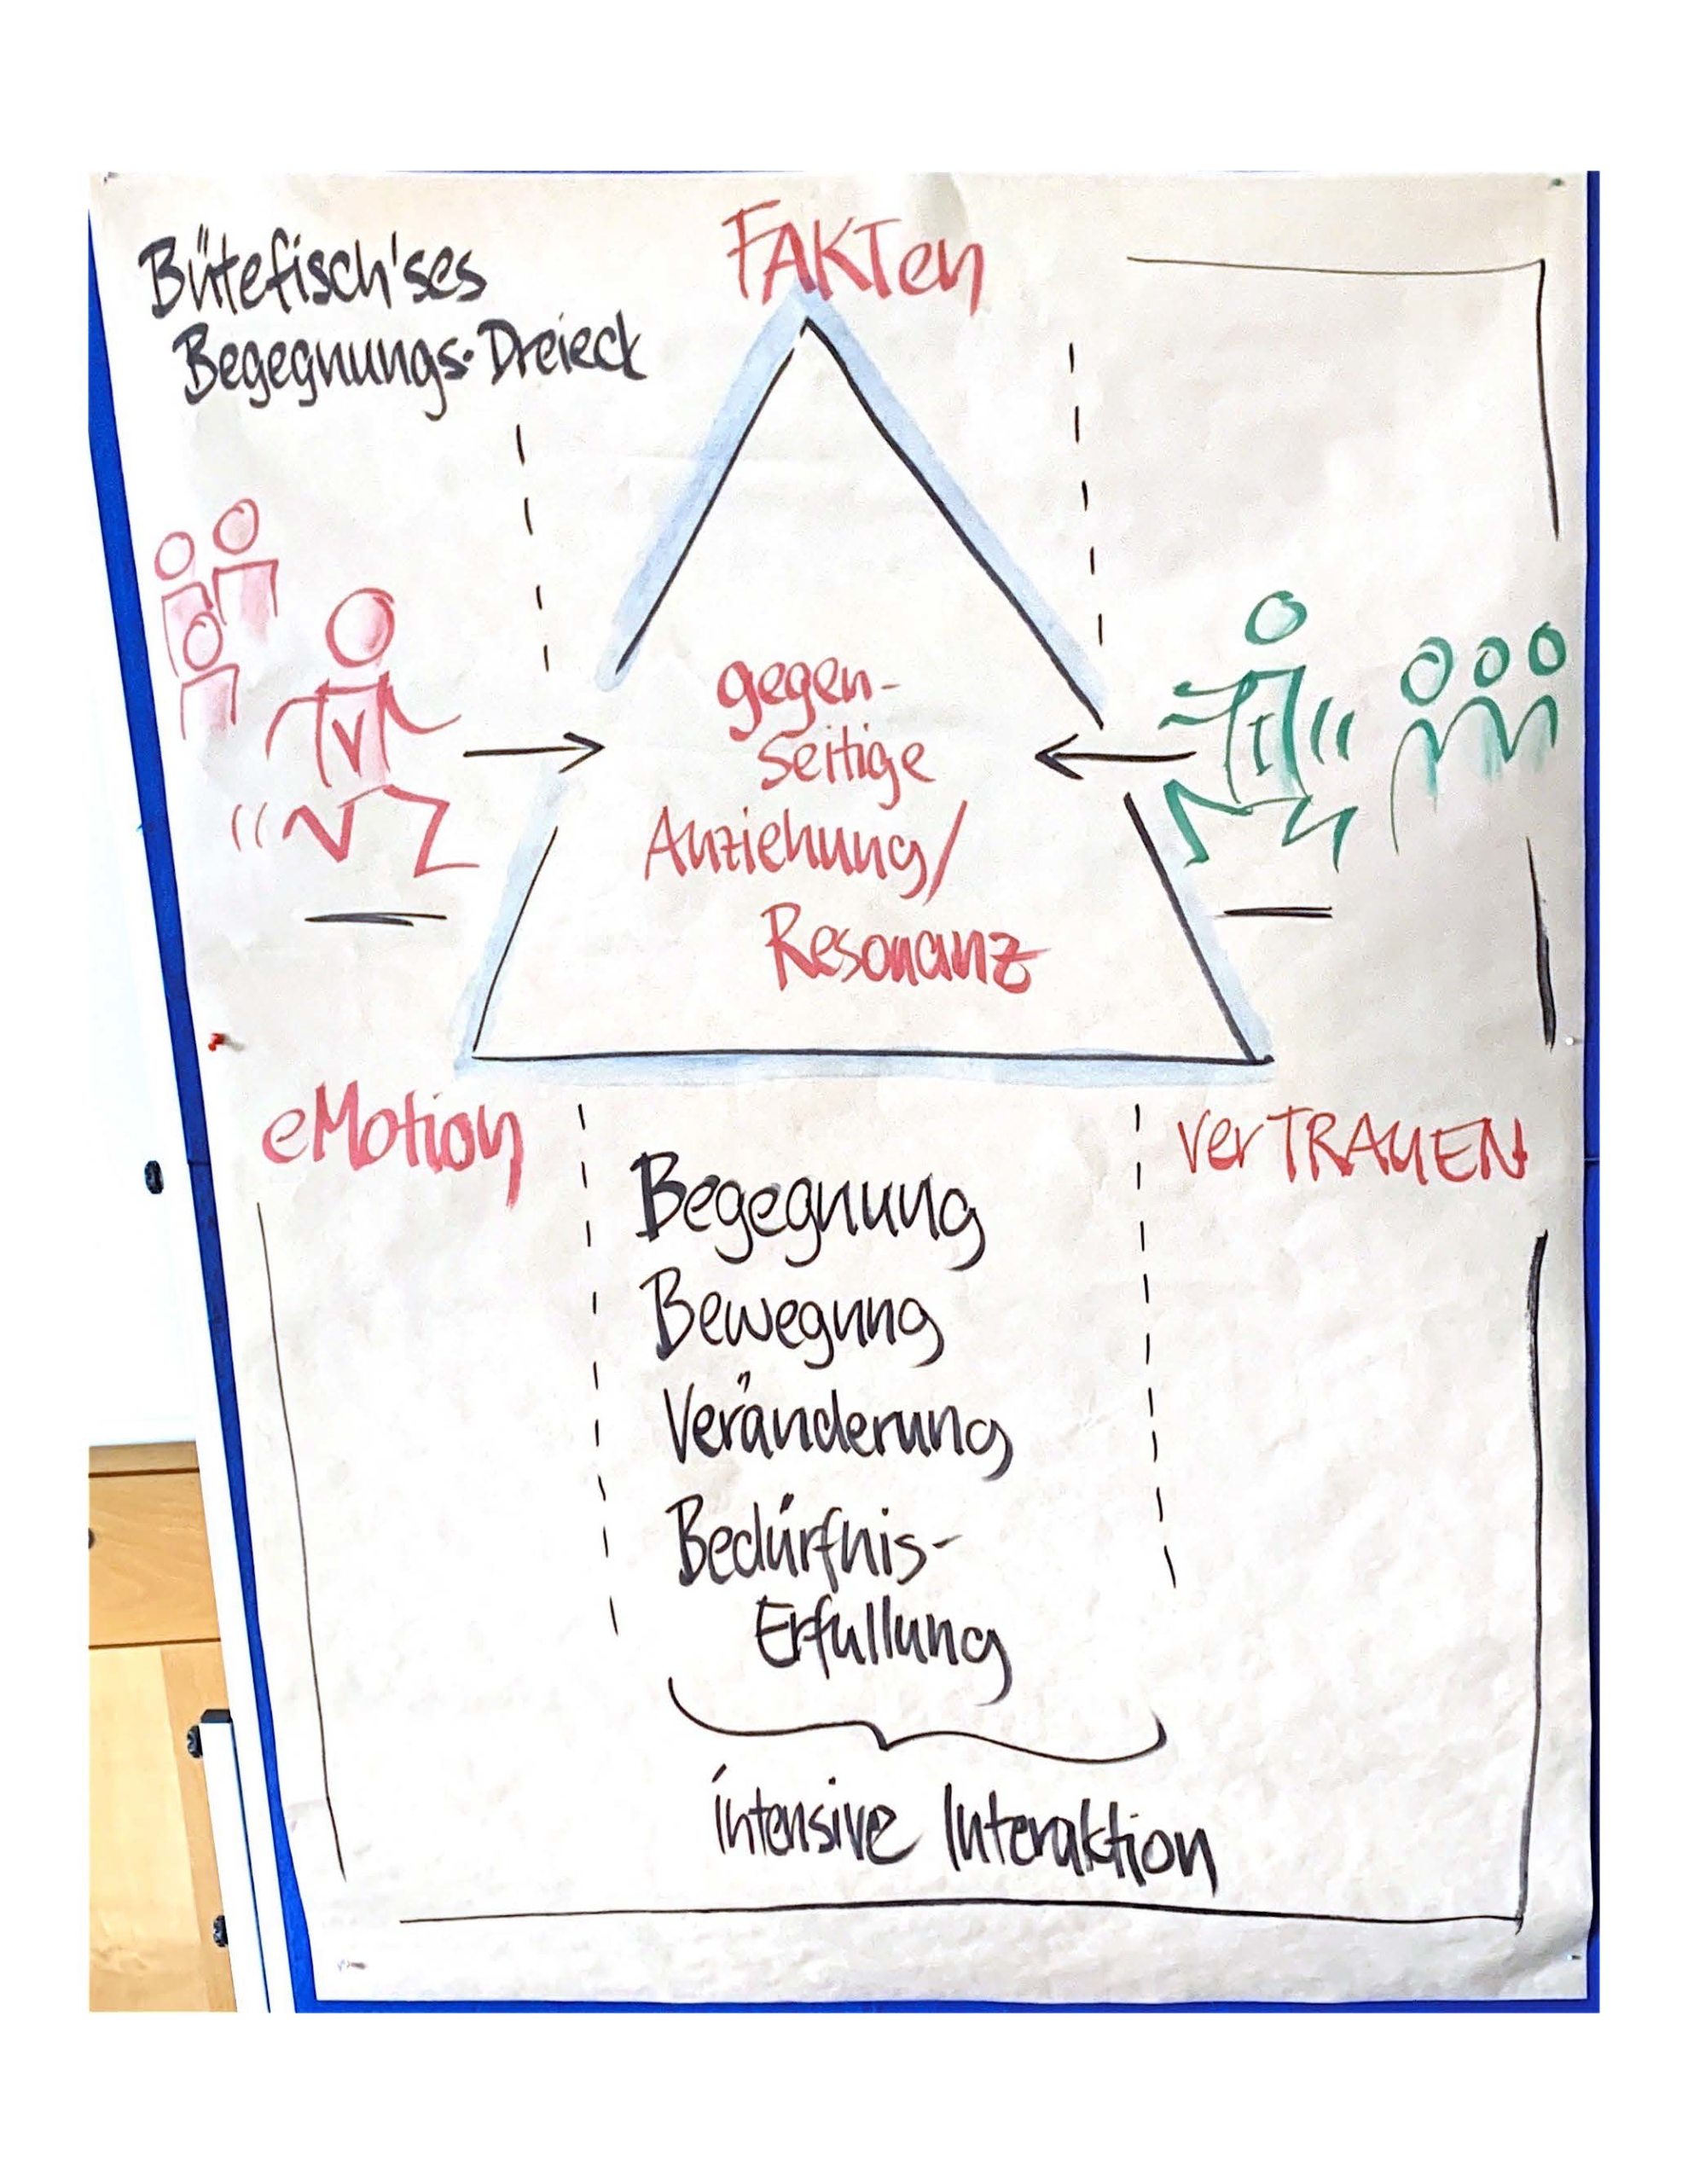 Bütefisch'ses
Begegnungs-Dreieck
FAKTen
V
I
gegen-
seitige
Anziehung/
Resonanz
eMotion
verTRAUEN
Begegnung
Bewegung
Veränderung
Bedürfnis-
Erfüllung
intensive Interaktion